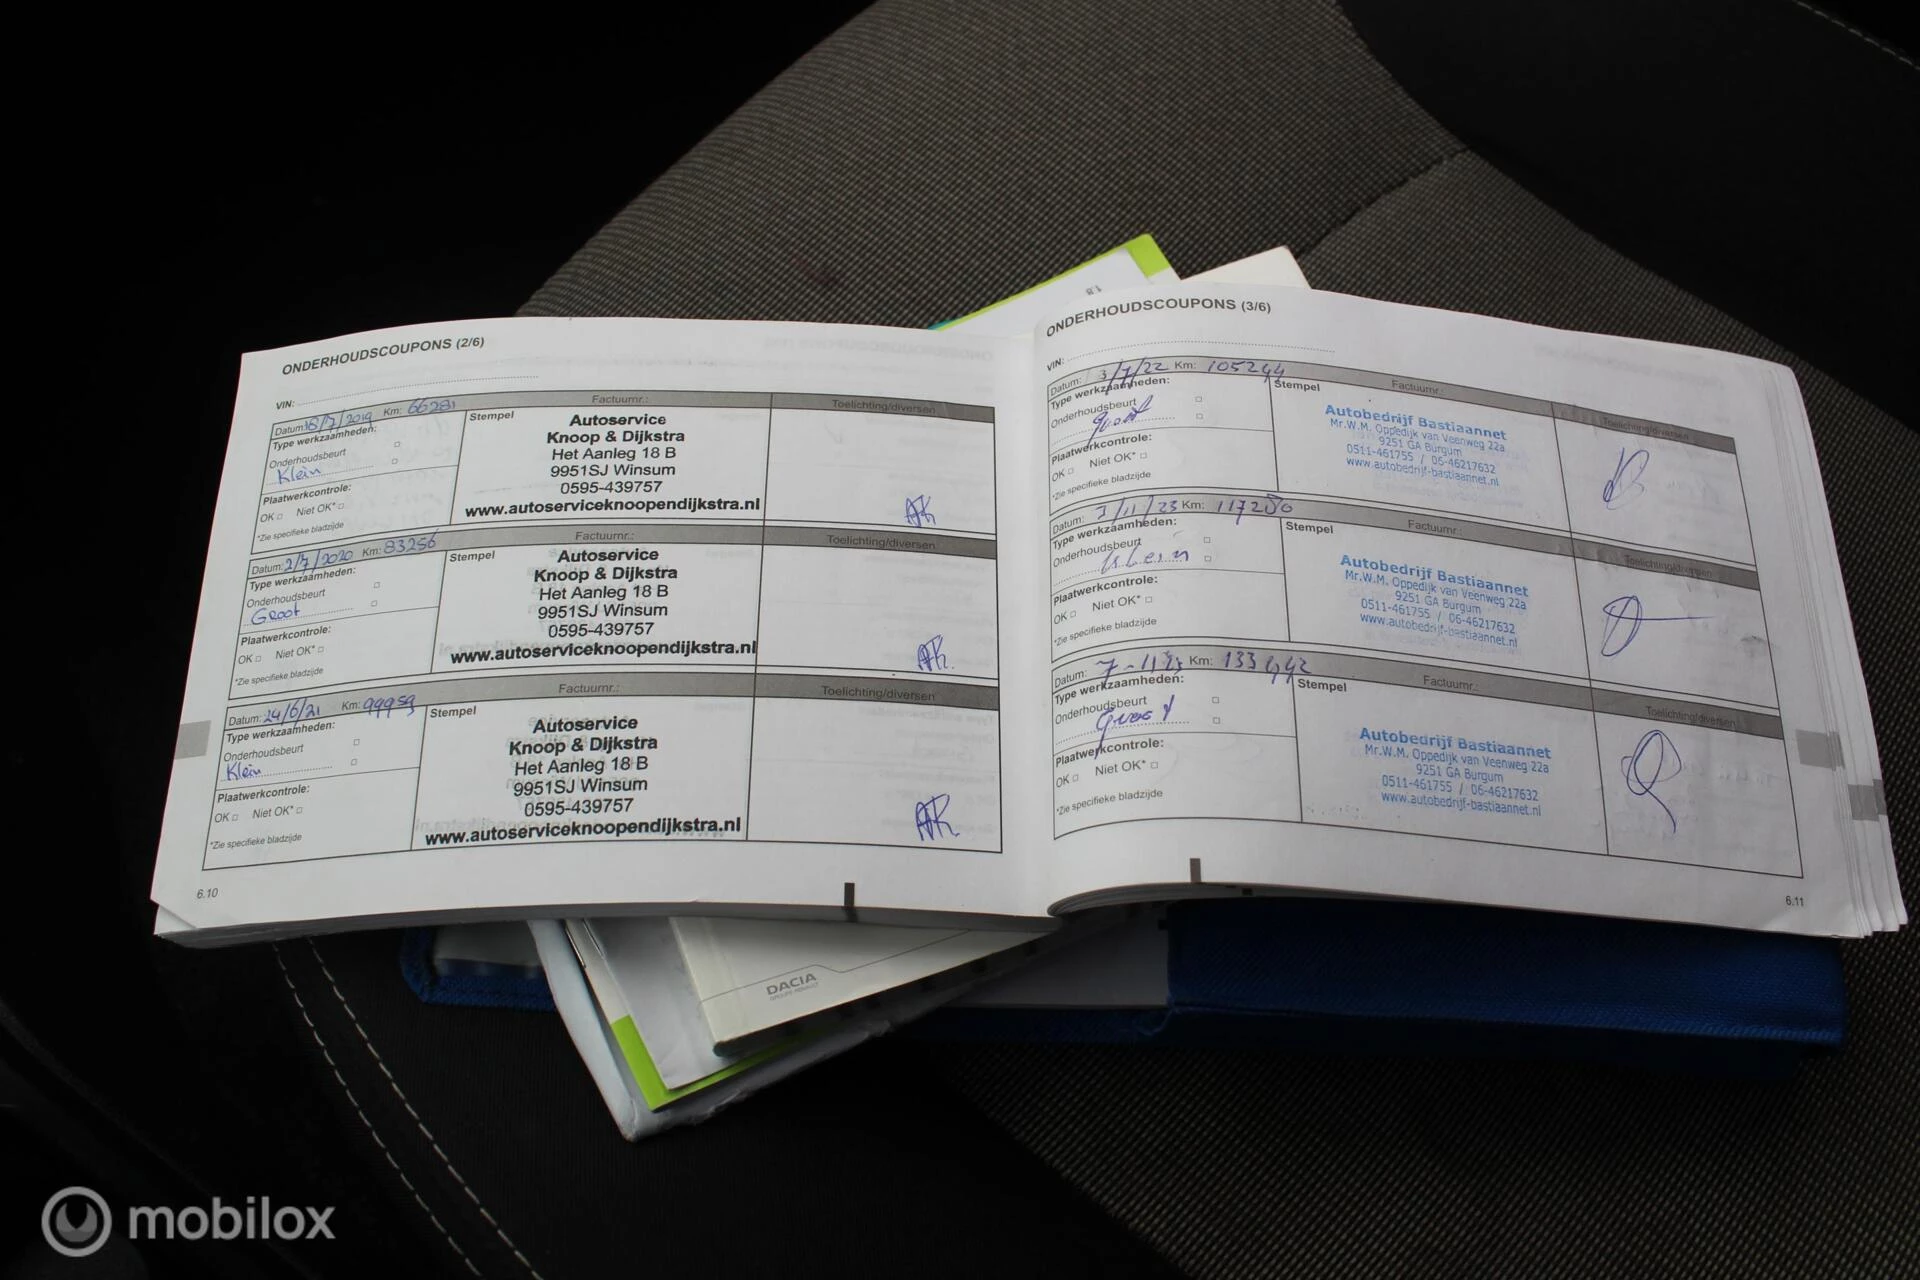 ONDERHOUDSCOUPONS (2/6)
VIN:
Datum: 18/7/2019 Km: 66281 Factuurnr.: Toelichting/diversen
Type werkzaamheden:
Onderhoudsbeurt
Klein
Plaatwerkcontrole:
OK Niet OK*
*Zie specifieke bladzijde
Stempel
Autoservice
Knoop & Dijkstra
Het Aanleg 18 B
9951SJ Winsum
0595-439757
www.autoserviceknoopendijkstra.nl
Datum: 2/7/2020 Km: 83256 Factuurnr.: Toelichting/diversen
Type werkzaamheden:
Onderhoudsbeurt
Groot
Plaatwerkcontrole:
OK Niet OK*
*Zie specifieke bladzijde
Stempel
Autoservice
Knoop & Dijkstra
Het Aanleg 18 B
9951SJ Winsum
0595-439757
www.autoserviceknoopendijkstra.nl
Datum: 24/6/21 Km: 99959 Factuurnr.: Toelichting/diversen
Type werkzaamheden:
Onderhoudsbeurt
Klein
Plaatwerkcontrole:
OK Niet OK*
*Zie specifieke bladzijde
Stempel
Autoservice
Knoop & Dijkstra
Het Aanleg 18 B
9951SJ Winsum
0595-439757
www.autoserviceknoopendijkstra.nl
6.10
ONDERHOUDSCOUPONS (3/6)
VIN:
Datum: 3/7/22 Km: 105244 Factuurnr.: Toelichting/diversen
Type werkzaamheden:
Onderhoudsbeurt
groot
Plaatwerkcontrole:
OK Niet OK*
*Zie specifieke bladzijde
Stempel
Autobedrijf Bastiaannet
Mr.W.M. Oppedijk van Veenweg 22a
9251 GA Burgum
0511-461755 / 06-46217632
www.autobedrijf-bastiaannet.nl
Datum: Km: 117280 Factuurnr.: Toelichting/diversen
Type werkzaamheden:
Onderhoudsbeurt
klein
Plaatwerkcontrole:
OK Niet OK*
*Zie specifieke bladzijde
Stempel
Autobedrijf Bastiaannet
Mr.W.M. Oppedijk van Veenweg 22a
9251 GA Burgum
0511-461755 / 06-46217632
www.autobedrijf-bastiaannet.nl
Datum: Km: 133442 Factuurnr.: Toelichting/diversen
Type werkzaamheden:
Onderhoudsbeurt
groot
Plaatwerkcontrole:
OK Niet OK*
*Zie specifieke bladzijde
Stempel
Autobedrijf Bastiaannet
Mr.W.M. Oppedijk van Veenweg 22a
9251 GA Burgum
0511-461755 / 06-46217632
www.autobedrijf-bastiaannet.nl
6.11
DACIA
GROUPE RENAULT
mobilox